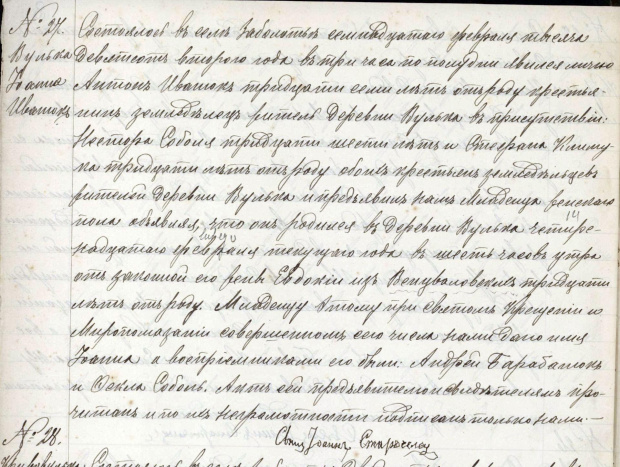 № 27.
Вулька
Іоаннъ
Иватюкъ
Состоялось въ селѣ Заболотьѣ семнадцатаго февраля тысяча
Девятьсотъ второго года въ три часа по полудни явился лично
Антонъ Иватюкъ тридцати семи лѣтъ отъ роду крестья-
нинъ земледѣлецъ житель деревни Вулька въ присутствіи:
Нестора Соболя тридцати шести лѣтъ и Стефана Климу-
ка тридцати лѣтъ отъ роду обоихъ крестьянъ земледѣльцевъ
жителей деревни Вулька и предъявилъ намъ младенца женскаго
пола объявляя, что онъ родился въ деревни Вулька четыре- 14
надцатаго февраля текущаго года въ шесть часовъ утра
отъ законной его жены Евдокіи изъ тридцати
лѣтъ отъ роду. Младенцу этому при святомъ Крещеніи и
Миропомазаніи совершенномъ сего числа нами дано имя
Іоанна а воспріемниками его были: Андрей Барабашюкъ
и Ѳекла Соболь. Актъ сей предъявителю и свидѣтелямъ про-
читанъ и по ихъ неграмотности подписанъ только нами.—
Свящ. Іоаннъ
№ 28.